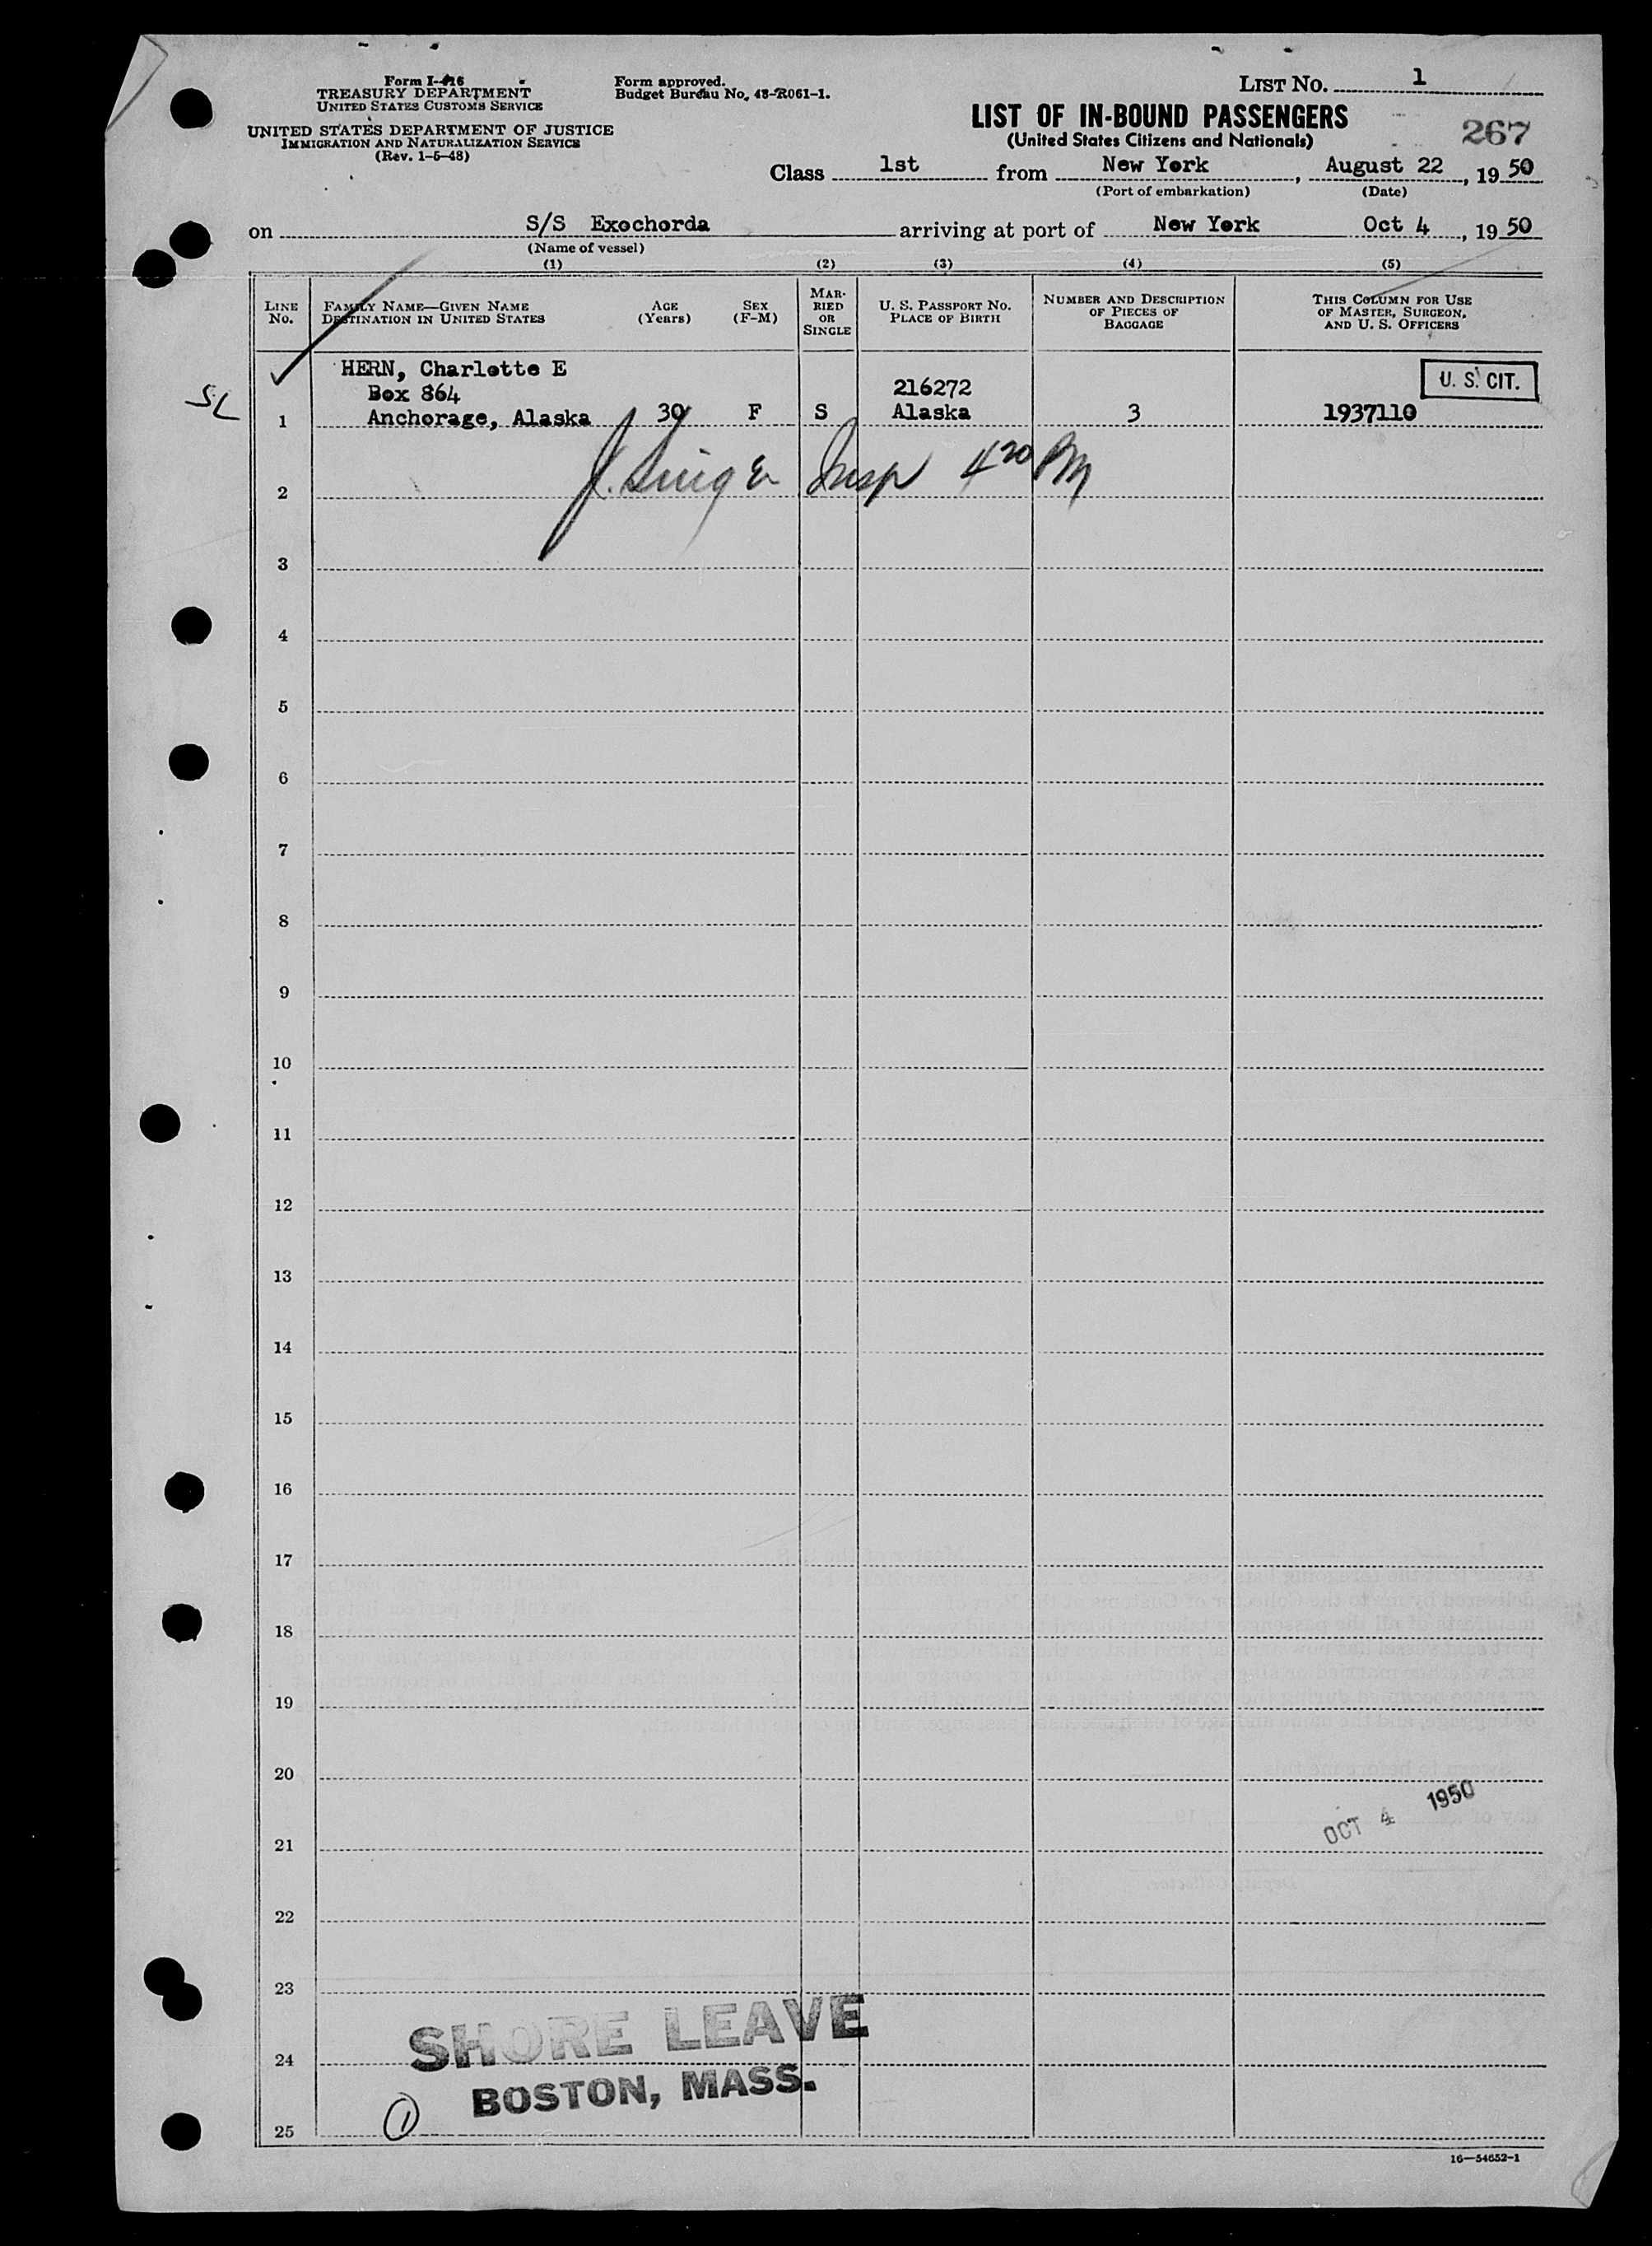 Form I-416
TREASURY DEPARTMENT
UNITED STATES CUSTOMS SERVICE
UNITED STATES DEPARTMENT OF JUSTICE
IMMIGRATION AND NATURALIZATION SERVICE
(Rev. 1-5-48)
Form approved.
Budget Bureau No. 43-R061-1.
LIST NO. 1
LIST OF IN-BOUND PASSENGERS
(United States Citizens and Nationals)
267
Class 1st from New York, August 22, 19 50
(Port of embarkation) (Date)
on S/S Exochorda arriving at port of New York Oct 4, 19 50
(Name of vessel)
(1) (2) (3) (4) (5)
LINE No.
FAMILY NAME—GIVEN NAME
DESTINATION IN UNITED STATES
AGE (Years)
SEX (F-M)
MARRIED OR SINGLE
U. S. PASSPORT NO.
PLACE OF BIRTH
NUMBER AND DESCRIPTION OF PIECES OF BAGGAGE
THIS COLUMN FOR USE OF MASTER, SURGEON, AND U. S. OFFICERS
HERN, Charlotte E
Box 864 216272 U. S. CIT.
SL
1 Anchorage, Alaska 30 F S Alaska 3 1937110
J. Singer Insp 4 20 PM
2
3
4
5
6
7
8
9
10
11
12
13
14
15
16
17
18
19
20
OCT 4 1950
21
22
23
SHORE LEAVE
24
BOSTON, MASS.
1
25
16—54652-1